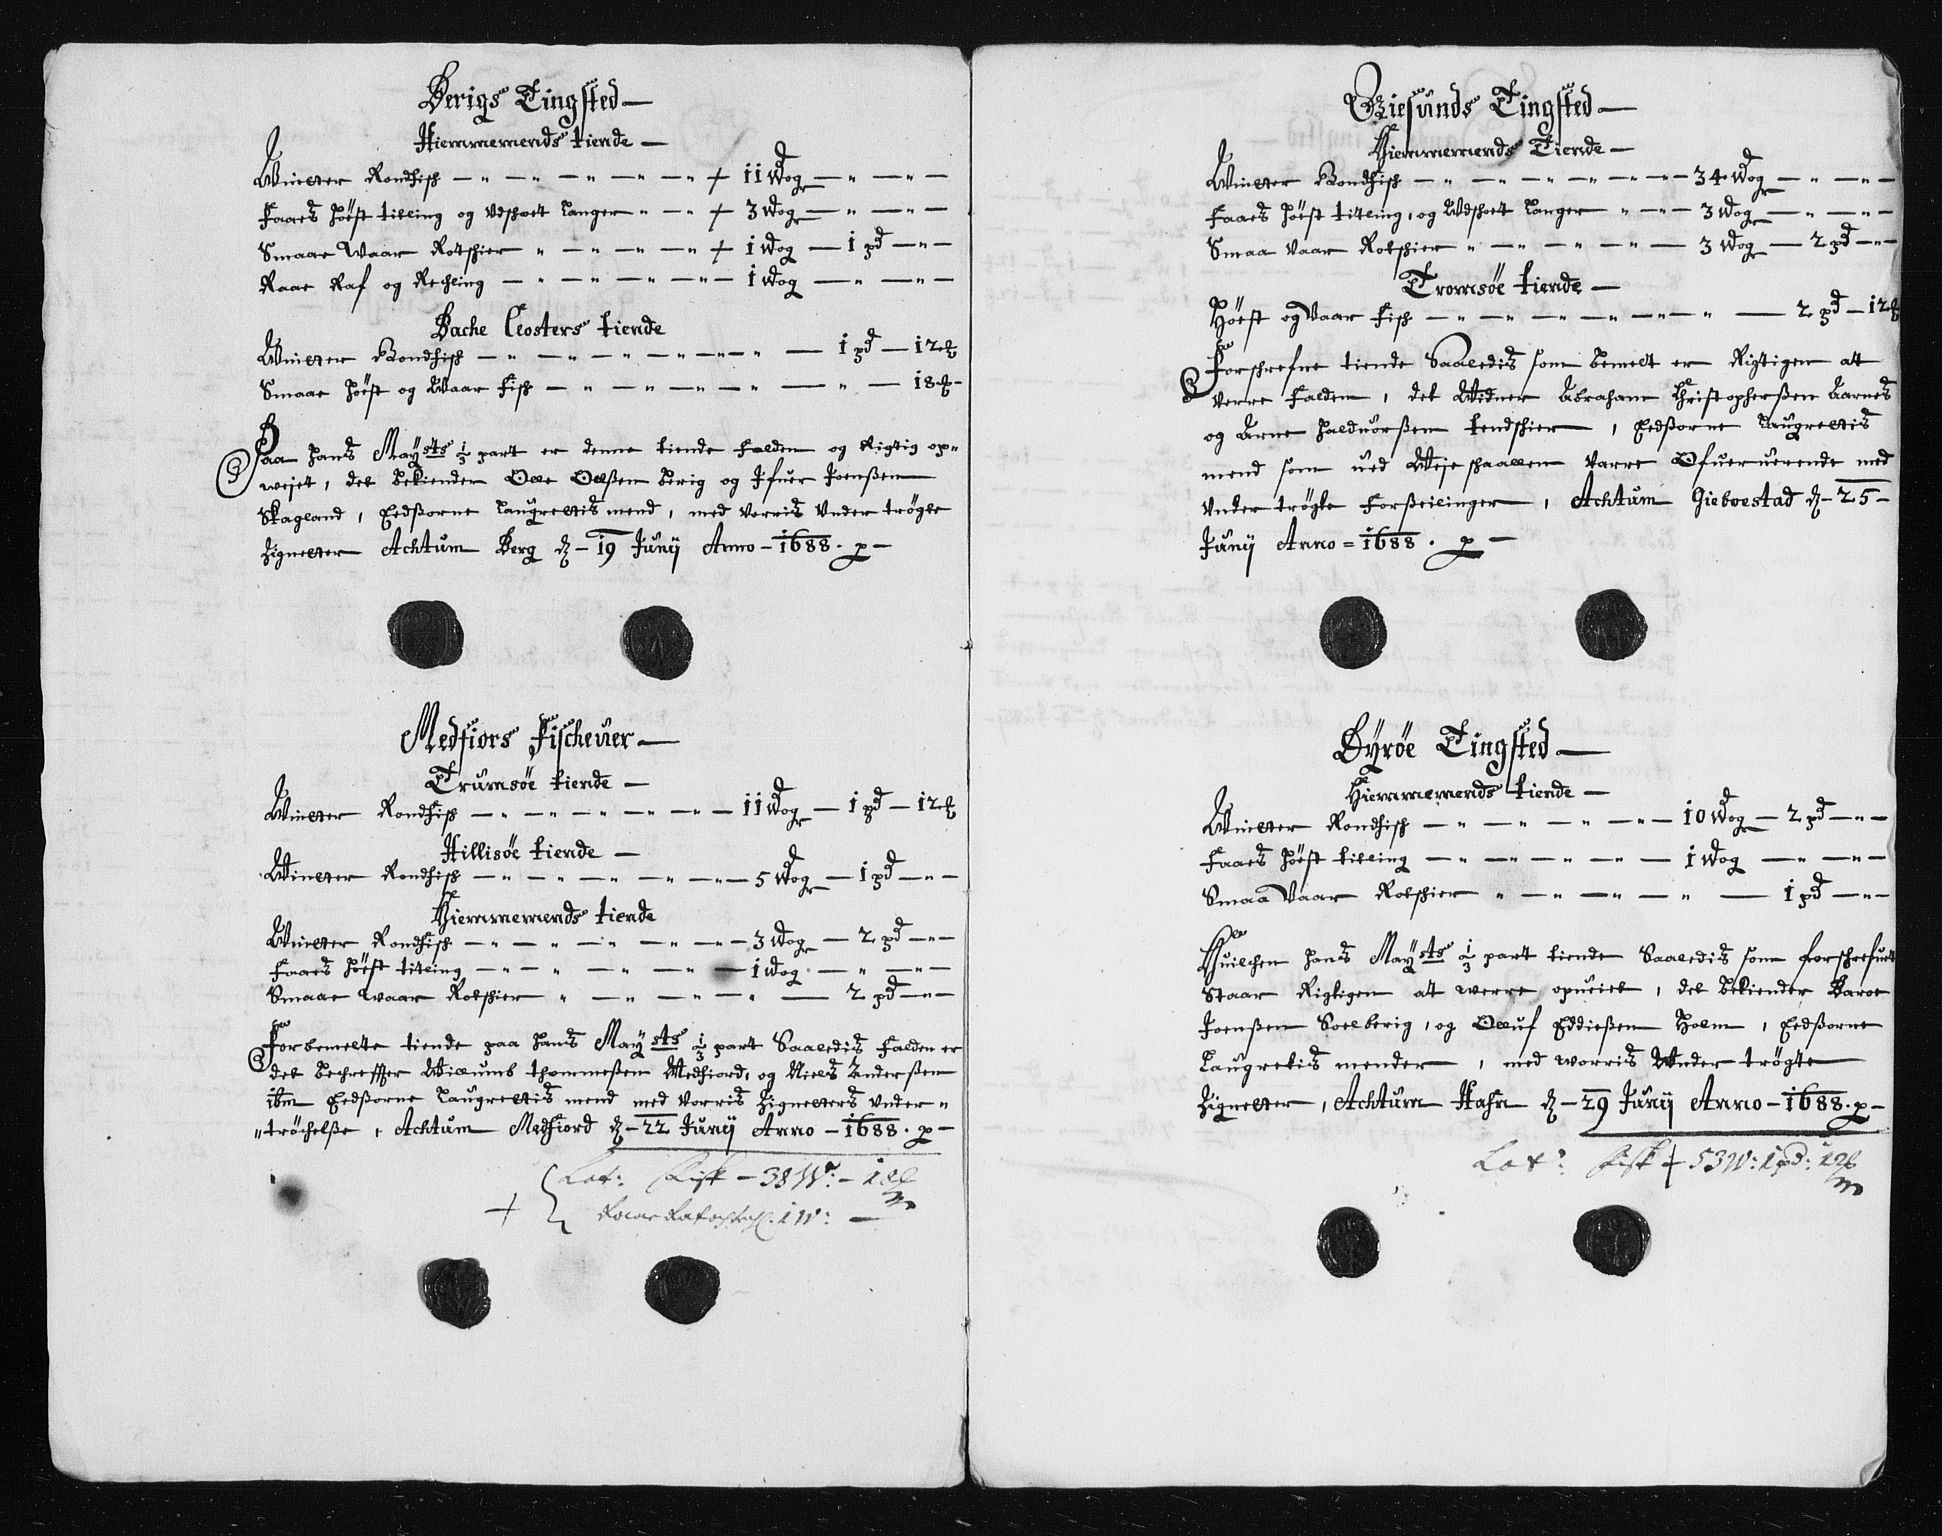 Berigs Tingsted —
Hiemmemends tiende —
Winter Rondfisk — 11 Wog — " — " —
Faaes höest titling og Udskat Langer — 3 Wog — " — " —
Smaae Waar Rotskier — 1 Wog — 1 pd — " —
Raae Raf og Rechling — 1 Wog — " — " —
Bache Closters tiende
Winter Bondfisk — 1 pd — 12
Smaae höest og Waar fisk — " — 18
Paa hans Maysts 1/3 part er denne tiende falden og Rigtig op=
wejet, det bekiender Olle Olßen Berig og Ifuer Joenßen
Skagland, Eedßorne Laugrettis mend, med vorris under trögte
Zigneter Actum Berg d — 19 Junij Anno — 1688. p —
Medfiors Fischeuer —
Trumsöe tiende —
Winter Rondfisk — 11 Wog — 1 pd — 12
Hillisöe tiende —
Winter Rondfisk — 5 Wog — 1 pd — " —
Hiemmemends tiende
Winter Rondfisk — 3 Wog — 2 pd — " —
Faaes höest titling — 1 Wog — " — " —
Smaae waar Rotskier — 2 pd — " —
Forbemelte tiende paa hans Maysts 1/3 part Saaledis falden er
det bechreffter Willumb thommeßen Medfiord, og Niels Anderßen
ibm Eedßorne Laugrettis mend med vorris Zigneters under=
=tröchelße, Actum Medfiord d — 22 Junij Anno — 1688. p —
Lat: Fisk — 38 W: — 18
Raae Raf och Rechl: 1 W: —
Giesunds Tingsted —
Hiemmemends Tiende —
Winter Bondfisk — 34 Wog — " — " —
Faaes höest titling, og Udskat Langer — 3 Wog — " — " —
Smaa Vaar Rotskier — 3 Wog — 2 pd — " —
Tromsöe tiende —
Höest og Vaar fisk — 2 pd — 12
Forschrefne tiende Saaledis som bemelt er Rigtigen att
verre falden, det Widner Abraham Christopherßen Aarnes
og Arne haldvorßen tendskier, Eedßorne Laugrettis
mend som ved Weje skaallen varre Ofueruerende med
under trögte forßeilinger, Actum Gieboestad d — 25 —
Junij Anno = 1688. p —
Öyröe Tingsted —
Hiemmemends tiende —
Winter Rondfisk — 10 Wog — 2 pd — " —
Faaes höest titling — 1 Wog — " — " —
Smaa Vaar Rotskier — 1 pd — " —
Huilchen hans Maysts 1/3 part tiende Saaledis som forschrefuet
Staar Rigtigen att werre opueiet, det bekiender Baroe
Joenßen Soelberig, og Olluf Eddießen Holm, Eedßorne
Laugrettis mender, med worris Under trögte
Zigneter, Actum Hafn d — 29 Junij Anno — 1688. p —
Lat: Fisk 53 W: 1 pd: 12